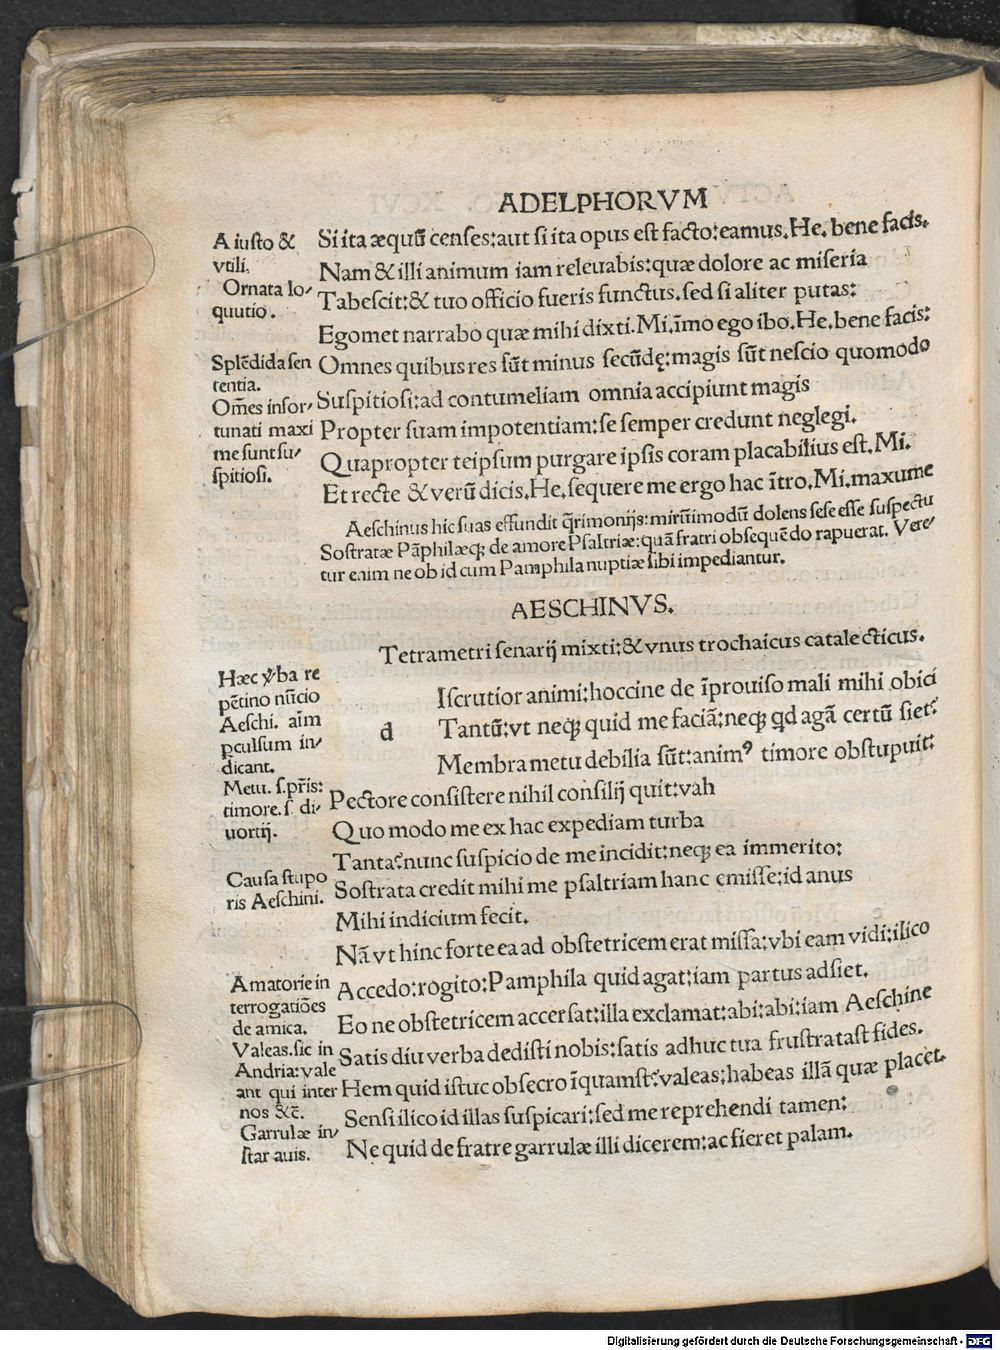 ADELPHORVM
A iusto &
vtili.
Ornata lo/
quutio.
Splēdida sen
tentia.
Om̄es infor/
tunati maxi
me sunt su/
spitiosi.
Si ita æquū censes: aut si ita opus est facto: eamus. He. bene facis.
Nam & illi animum iam releuabis: quæ dolore ac miseria
Tabescit: & tuo officio fueris functus. sed si aliter putas:
Egomet narrabo quæ mihi dixti. Mi. īmo ego ibo. He. bene facis:
Omnes quibus res sūt minus secūdę: magis sūt nescio quomodo
Suspitiosi: ad contumeliam omnia accipiunt magis
Propter suam impotentiam: se semper credunt neglegi.
Quapropter teipsum purgare ipsis coram placabilius est. Mi.
Et recte & verū dicis. He. sequere me ergo hac ītro. Mi. maxume
Aeschinus hic suas effundit q̄rimonijs: mirūimodū dolens sese esse suspectū
Sostratæ Pāphilæq; de amore Psaltriæ: quā fratri obsequēdo rapuerat. Vere/
tur enim ne ob id cum Pamphila nuptiæ sibi impediantur.
AESCHINVS.
Tetrametri senarij mixti: & vnus trochaicus catalecticus.
Hæc v̄ba re
pētino nūcio
Aeschi. aīm
ꝑculsum in/
dicant.
Metu. s. pr̄is:
timore. s. di/
uortij.
Causa stupo
ris Aeschini.
Amatorie in
terrogatiōes
de amica.
Valeas. sic in
Andria: vale
ant qui inter
nos &c̄.
Garrulæ in/
star auis.
d
Iscrutior animi: hoccine de īprouiso mali mihi obici
Tantū: vt neq; quid me faciā: neq; qd agā certū siet?
Membra metu debilia sūt: animꝰ timore obstupuit:
Pectore consistere nihil consilij quit: vah
Quo modo me ex hac expediam turba
Tanta? nunc suspicio de me incidit: neq; ea immerito:
Sostrata credit mihi me psaltriam hanc emisse: id anus
Mihi indicium fecit.
Nā vt hinc forte ea ad obstetricem erat missa: vbi eam vidi: ilico
Accedo: rogito: Pamphila quid agat: iam partus adsiet.
Eo ne obstetricem accersat: illa exclamat: abi: abi: iam Aeschine
Satis diu verba dedisti nobis: satis adhuc tua frustratast fides.
Hem quid istuc obsecro īquamst? valeas: habeas illā quæ placet.
Sensi ilico id illas suspicari: sed me reprehendi tamen:
Ne quid de fratre garrulæ illi dicerem: ac fieret palam.
Digitalisierung gefördert durch die Deutsche Forschungsgemeinschaft - DFG